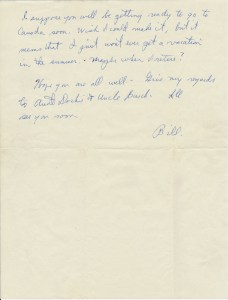 I suppose you will be getting ready to go to
Canada soon. Wish I could make it, but it
seems that I just won't ever get a vacation
in the summer. Maybe when I retire?
Hope you are all well. Give my regards
to Aunt Doris & Uncle. I'll
see you soon.
Bill